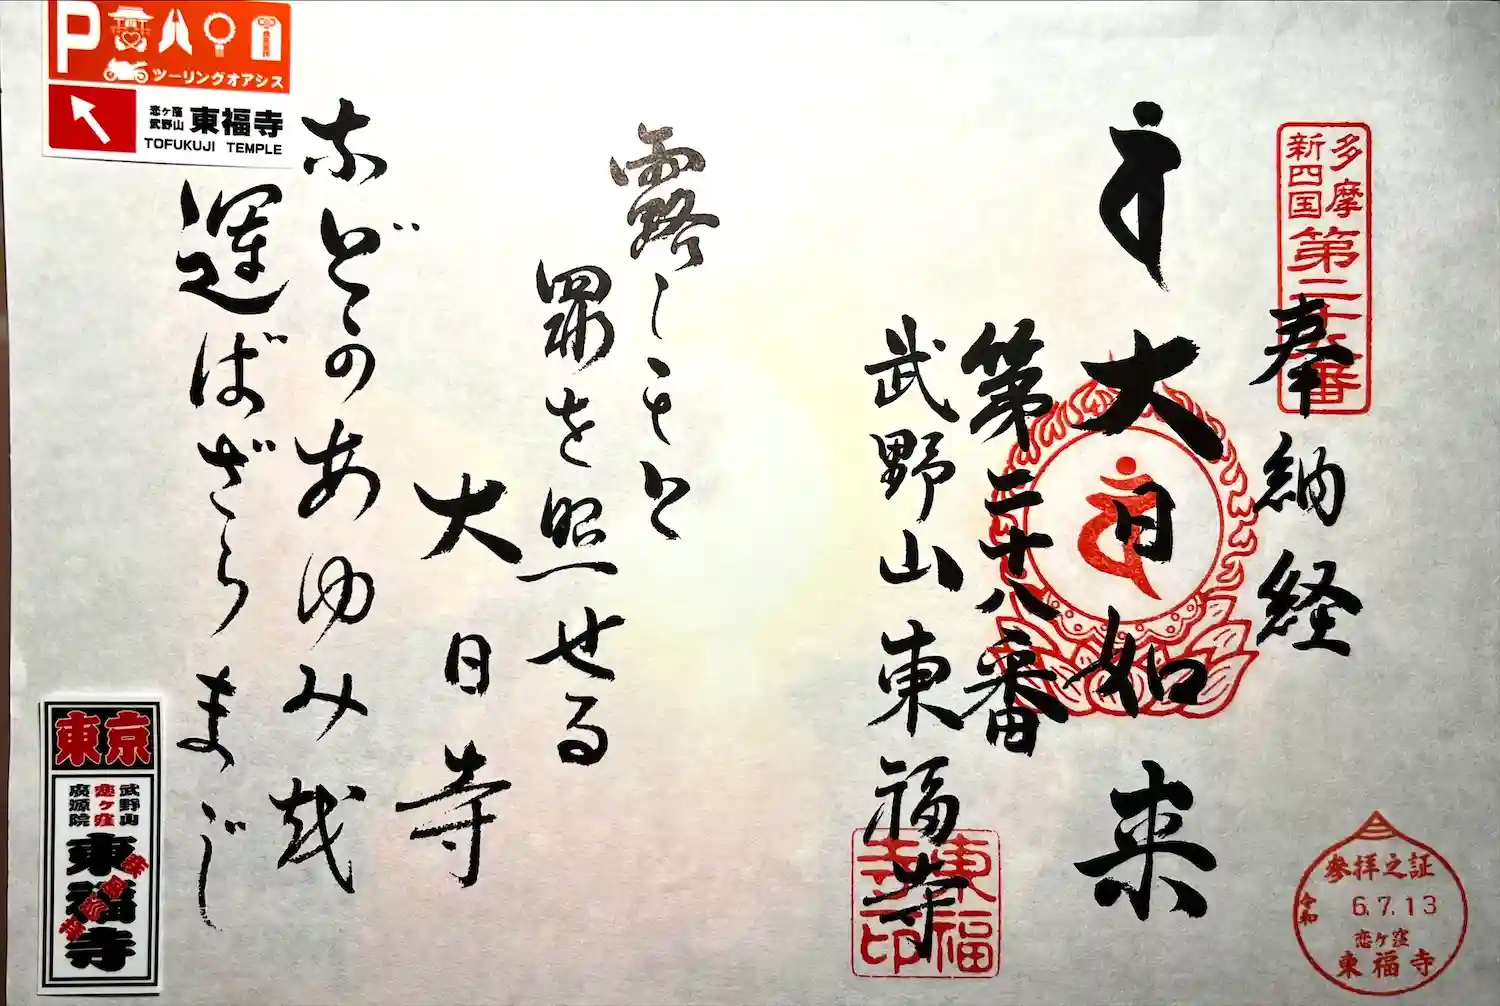 多摩
新四国
第二十八番
奉納経
大日如来
第二十八番
武野山東福寺
東福
寺印
参拝之証
令和
6.7.13
恋ヶ窪
東福寺
露しもと
罪を照せる
大日寺
などかあゆみ越
運ばざらまじ
P
ツーリングオアシス
恋ヶ窪
武野山
東福寺
TOFUKUJI TEMPLE
東京
武野山
恋ヶ窪
廣源院
東福寺